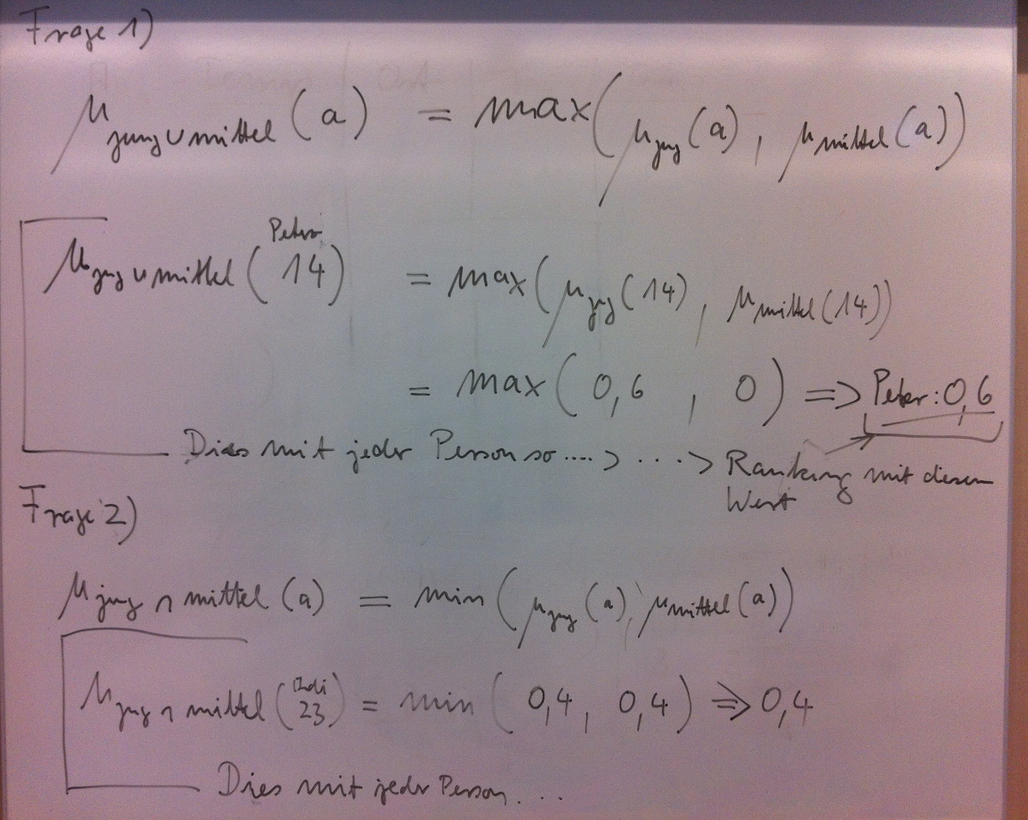 Frage 1)
μ jung ∪ mittel (a) = max( μ jung (a) , μ mittel (a) )
Peter
μ jung ∪ mittel ( 14 ) = max( μ jung (14) , μ mittel (14) )
= max( 0,6 , 0 ) => Peter: 0,6
Dies mit jeder Person so ....> ...> Ranking mit diesem
Wert
Frage 2)
μ jung ∩ mittel (a) = min( μ jung (a) , μ mittel (a) )
μ jung ∩ mittel ( 23 ) = min( 0,4 , 0,4 ) => 0,4
Dies mit jeder Person...